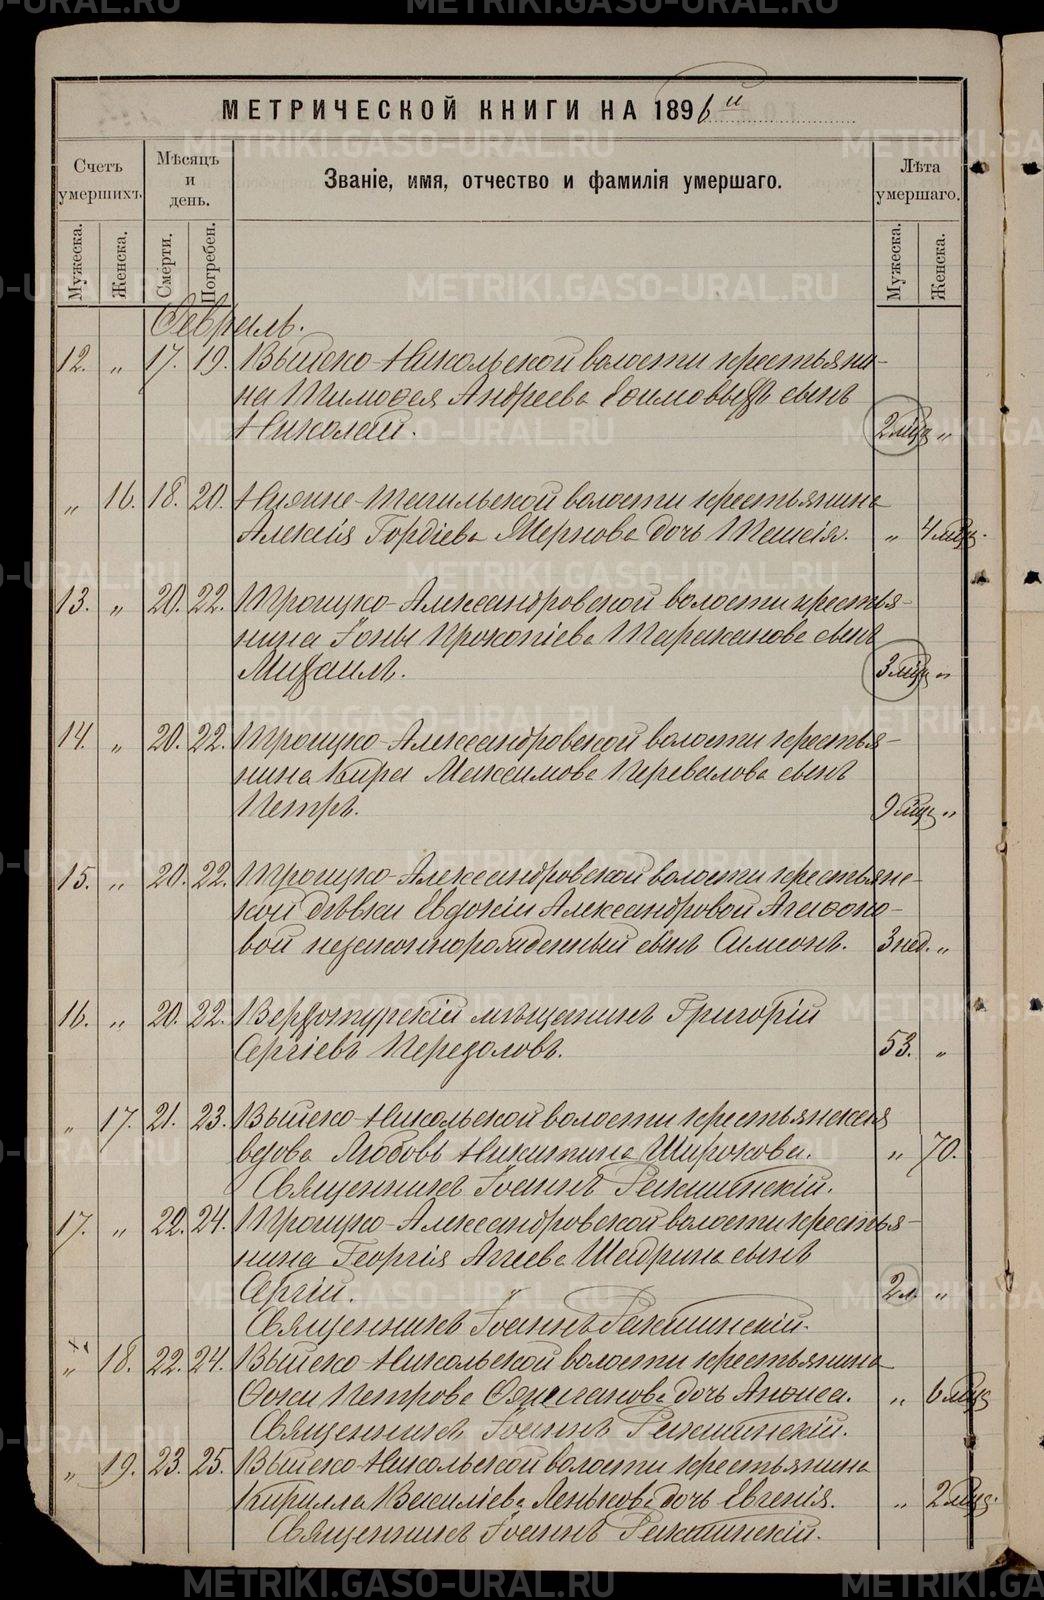 МЕТРИЧЕСКОЙ КНИГИ НА 1896й
Счетъ умершихъ. Мѣсяцъ и день. Званіе, имя, отчество и фамилія умершаго. Лѣта умершаго.
Мужеска. Женска. Смерти. Погребен. Мужеска. Женска.
Февраль.
12. „ 17. 19. Выйско-Никольской волости крестьяни-
на Тимоѳея Андреева сынъ
Николай. 2 мѣц „
„ 16. 18. 20. Нижне-Тагильской волости крестьянина
Алексія Гордіева дочь Таисія. „ 4 мѣц.
13. „ 20. 22. Троицко-Александровской волости крестья-
нина Іоны Прокопіева Тараканова сынъ
Михаилъ. 3 мѣц „
14. „ 20. 22. Троицко-Александровской волости крестья-
нина Кира Максимова Перевалова сынъ
Петръ. 9 мѣц „
15. „ 20. 22. Троицко-Александровской волости крестьянс-
кой дѣвки Евдокіи Александровой Агаѳоно-
вой незаконнорожденный сынъ Симеонъ. 3 нед. „
16. „ 20. 22. Верхотурскій мѣщанинъ Григорій
Сергіевъ Перезоловъ. 53. „
„ 17. 21. 23. Выйско-Никольской волости крестьянская
вдова Любовь Никитина Широкова. „ 70.
Священникъ Іоаннъ
17. „ 22. 24. Троицко-Александровской волости крестья-
нина Георгія Аггеева Шадрина сынъ
Сергій. 2 л. „
Священникъ Іоаннъ
„ 18. 22. 24. Выйско-Никольской волости крестьянина
Ѳоки Петрова Ожиганова дочь Анѳиса. „ 6 мѣц
Священникъ Іоаннъ
„ 19. 23. 25. Выйско-Никольской волости крестьянина
Кирилла Василіева Ленькова дочь Евгенія. „ 2 мѣц.
Священникъ Іоаннъ
METRIKI.GASO-URAL.RU